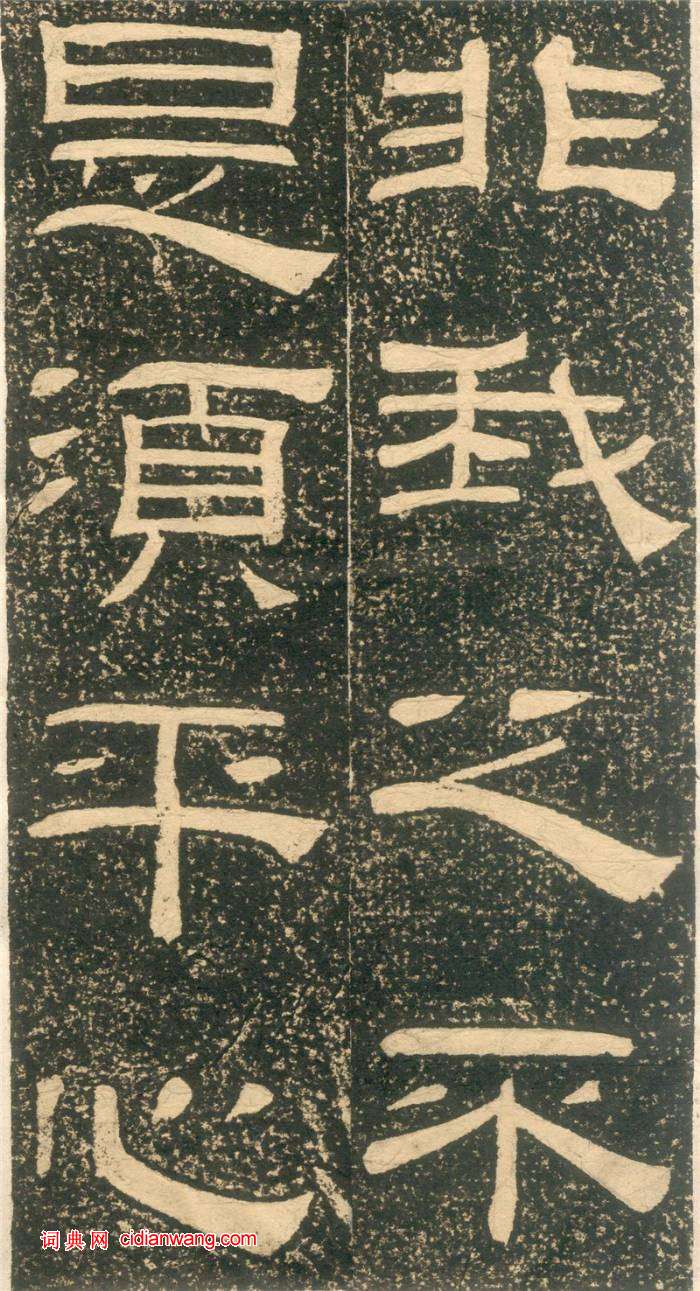 非我之不
是湏平心
词典网 cidianwang.com